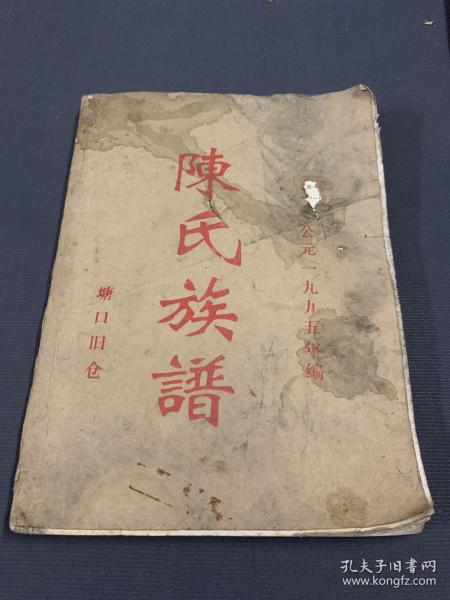 公元一九九五年编
陳氏族譜
塘口旧仓
孔夫子旧书网
www.kongfz.com